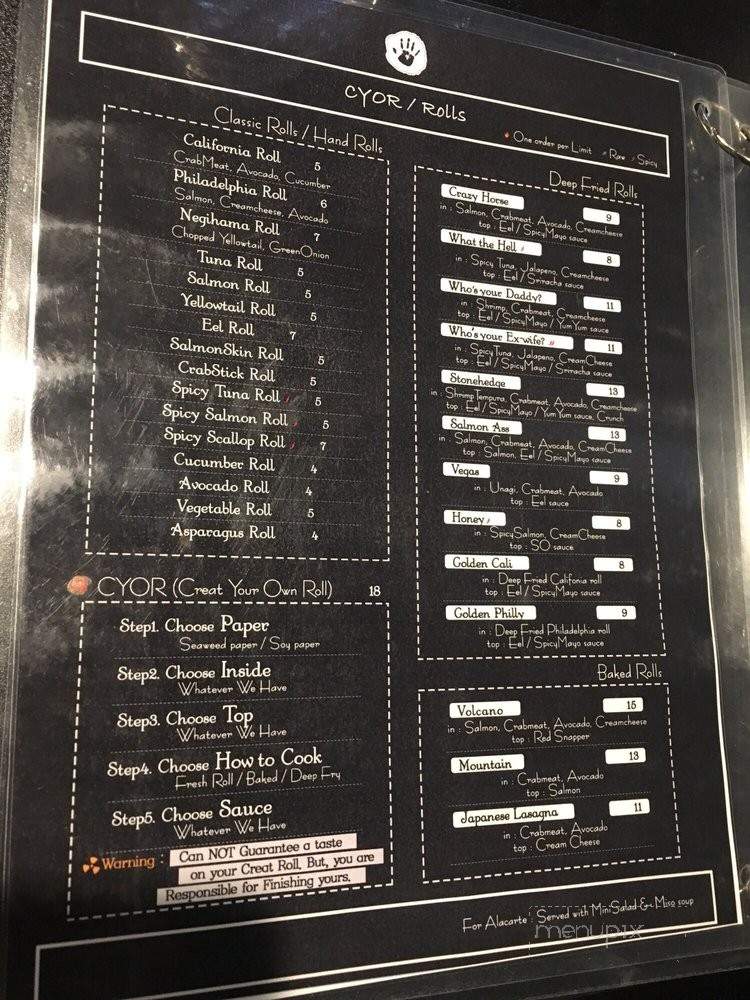 CYOR / Rolls
One order per Limit Raw Spicy
Classic Rolls / Hand Rolls
California Roll 5
CrabMeat, Avocado, Cucumber
Philadelphia Roll 6
Salmon, Creamcheese, Avocado
Negihama Roll 7
Chopped Yellowtail, GreenOnion
Tuna Roll 5
Salmon Roll 5
Yellowtail Roll 5
Eel Roll 7
SalmonSkin Roll 5
CrabStick Roll 5
Spicy Tuna Roll 5
Spicy Salmon Roll 5
Spicy Scallop Roll 7
Cucumber Roll 4
Avocado Roll 4
Vegetable Roll 5
Asparagus Roll 4
CYOR (Creat Your Own Roll) 18
Step1. Choose Paper
Seaweed paper / Soy paper
Step2. Choose Inside
Whatever We Have
Step3. Choose Top
Whatever We Have
Step4. Choose How to Cook
Fresh Roll / Baked / Deep Fry
Step5. Choose Sauce
Whatever We Have
Warning : Can NOT Guarantee a taste
on your Creat Roll, But, you are
Responsible for Finishing yours.
Deep Fried Rolls
Crazy Horse 9
in : Salmon, Crabmeat, Avocado, Creamcheese
top : Eel / SpicyMayo sauce
What the Hell 8
in : Spicy Tuna, Jalapeno, Creamcheese
top : Eel / Sriracha sauce
Who's your Daddy? 11
in : Shrimp, Crabmeat, Creamcheese
top : Eel / SpicyMayo / YumYum sauce
Who's your Ex-wife? 11
in : SpicyTuna, Jalapeno, CreamCheese
top : Eel / SpicyMayo / Sriracha sauce
Stonehedge 13
in : ShrimpTempura, Crabmeat, Avocado, Creamcheese
top : Eel / SpicyMayo / YumYum sauce, Crunch
Salmon Ass 13
in : Salmon, Crabmeat, Avocado, CreamCheese
top : Salmon, Eel / SpicyMayo sauce
Vegas 9
in : Unagi, Crabmeat, Avocado
top : Eel sauce
Honey 8
in : SpicySalmon, CreamCheese
top : SO sauce
Golden Cali 8
in : Deep Fried Califonia roll
top : Eel / SpicyMayo sauce
Golden Philly 9
in : Deep Fried Philadelphia roll
top : Eel / SpicyMayo sauce
Baked Rolls
Volcano 15
in : Salmon, Crabmeat, Avocado, Creamcheese
top : Red Snapper
Mountain 13
in : Crabmeat, Avocado
top : Salmon
Japanese Lasagna 11
in : Crabmeat, Avocado
top : Cream Cheese
For Alacarte : Served with MiniSalad & Miso soup
menupix